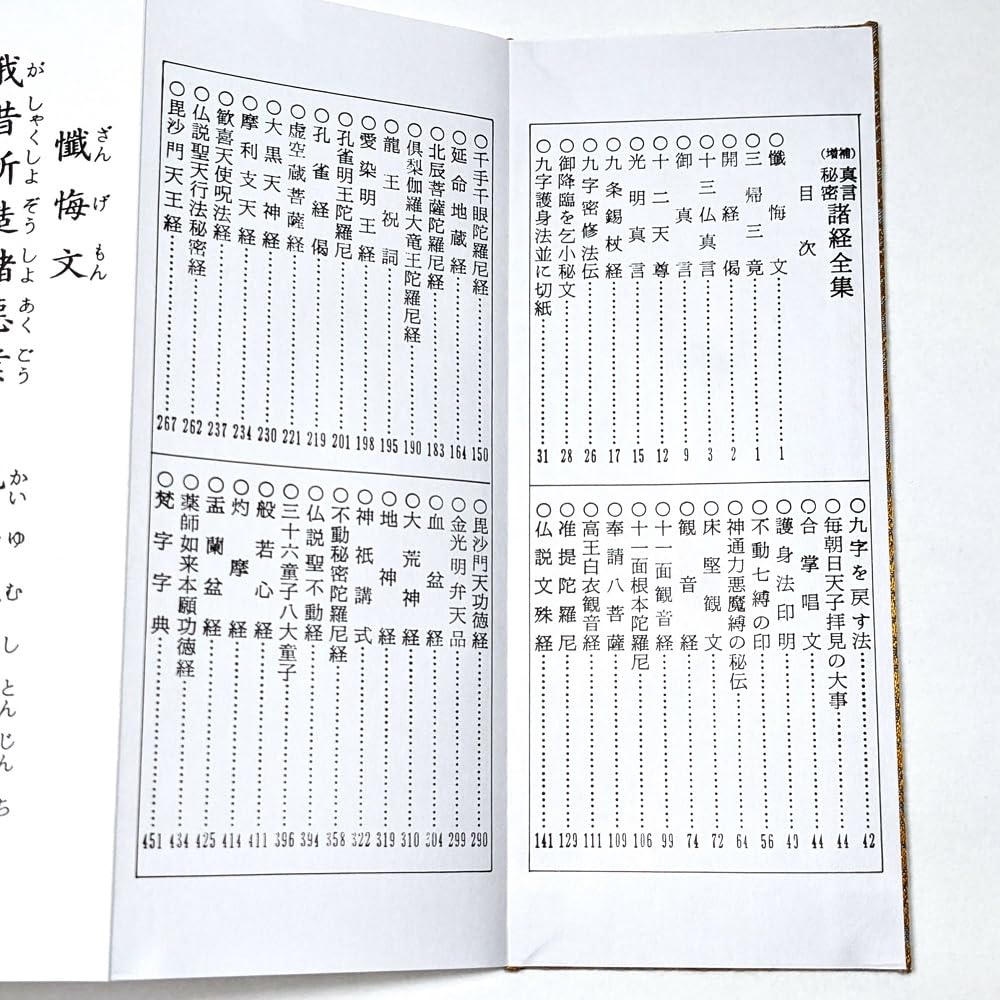 (増補)真言秘密諸経全集
目次
○懺悔文……1
○三帰三竟……1
○開経偈……2
○十三仏真言……3
○御真言……9
○十二天尊……12
○光明真言……15
○九条錫杖経……17
○九字密修法伝……26
○御降臨を乞小秘文……28
○九字護身法並に切紙……31
○九字を戻す法……42
○毎朝日天子拝見の大事……44
○合掌唱文……44
○護身法印明……49
○不動七縛の印……56
○神通力悪魔縛の秘伝……64
○床堅観文……72
○観音経……74
○十一面観音経……99
○十一面根本陀羅尼……106
○奉請八菩薩……109
○高王白衣観音経……111
○准提陀羅尼……129
○仏説文殊経……141
○千手千眼陀羅尼経……150
○延命地蔵経……164
○北辰菩薩陀羅尼経……183
○倶梨伽羅大竜王陀羅尼経……190
○龍王祝詞……195
○愛染明王経……198
○孔雀明王陀羅尼……201
○孔雀経偈……219
○虚空蔵菩薩経……221
○大黒天神経……230
○摩利支天経……234
○歓喜天使呪法経……237
○仏説聖天行法秘密経……262
○毘沙門天王経……267
○毘沙門天功徳経……290
○金光明弁天品……299
○血盆経……304
○大荒神経……310
○地神経……319
○神祇講式……322
○不動秘密陀羅尼経……358
○仏説聖不動経……394
○三十六童子八大童子……396
○般若心経……411
○灼摩経……414
○盂蘭盆経……425
○薬師如来本願功徳経……434
○梵字典……451
ざんげもん
懺悔文
がしゃくしよぞうしよあくごう
我昔所造諸悪
かいゆむしとんじんち